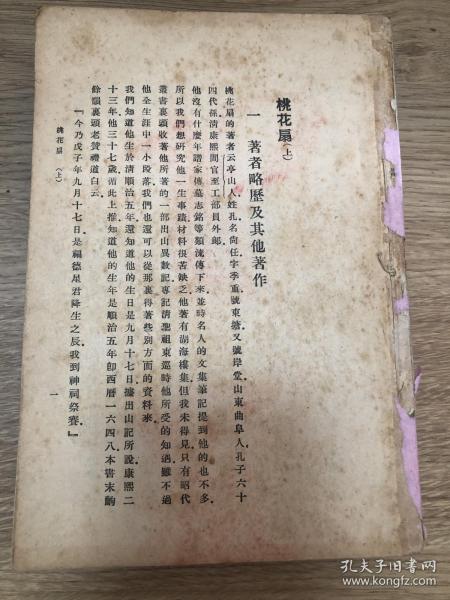 桃花扇(上)
一 著者略歷及其他著作
桃花扇的著者云亭山人姓孔名尙任字季重號東塘又號岸堂山東曲阜人孔子六十
四代孫淸康熙間官至工部員外郞
他沒有什麼年譜家傳墓志銘等類流傳下來並時名人的文集筆記提到他的也不多
所以我們想硏究他一生事蹟材料很苦缺乏他著有湖海樓集但我未得見只有昭代
叢書裏頭收著他所著的一部出山異數記專記淸聖祖東巡時他所受的知遇雖不過
他全生涯中一小段落我們也還可以從那裏得著些別方面的資料來
我們知道他生於淸順治五年還知道他的生日是九月十七日據出山記所說康熙二
十三年他三十七歲循此上推知道他的生年是順治五年卽西曆一六四八本書末齣
餘韻裏頭老贊禮道白云
『今乃戊子年九月十七日是福德星君降生之辰我到神祠祭賽』
桃花扇(上)
一
孔夫子旧书网
www.kongfz.com